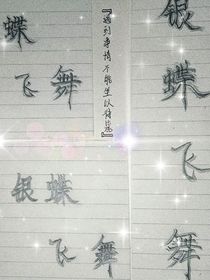 蝶
飞舞
『遇到事情不能坐以待毙』
银蝶飞舞
银蝶
飞舞